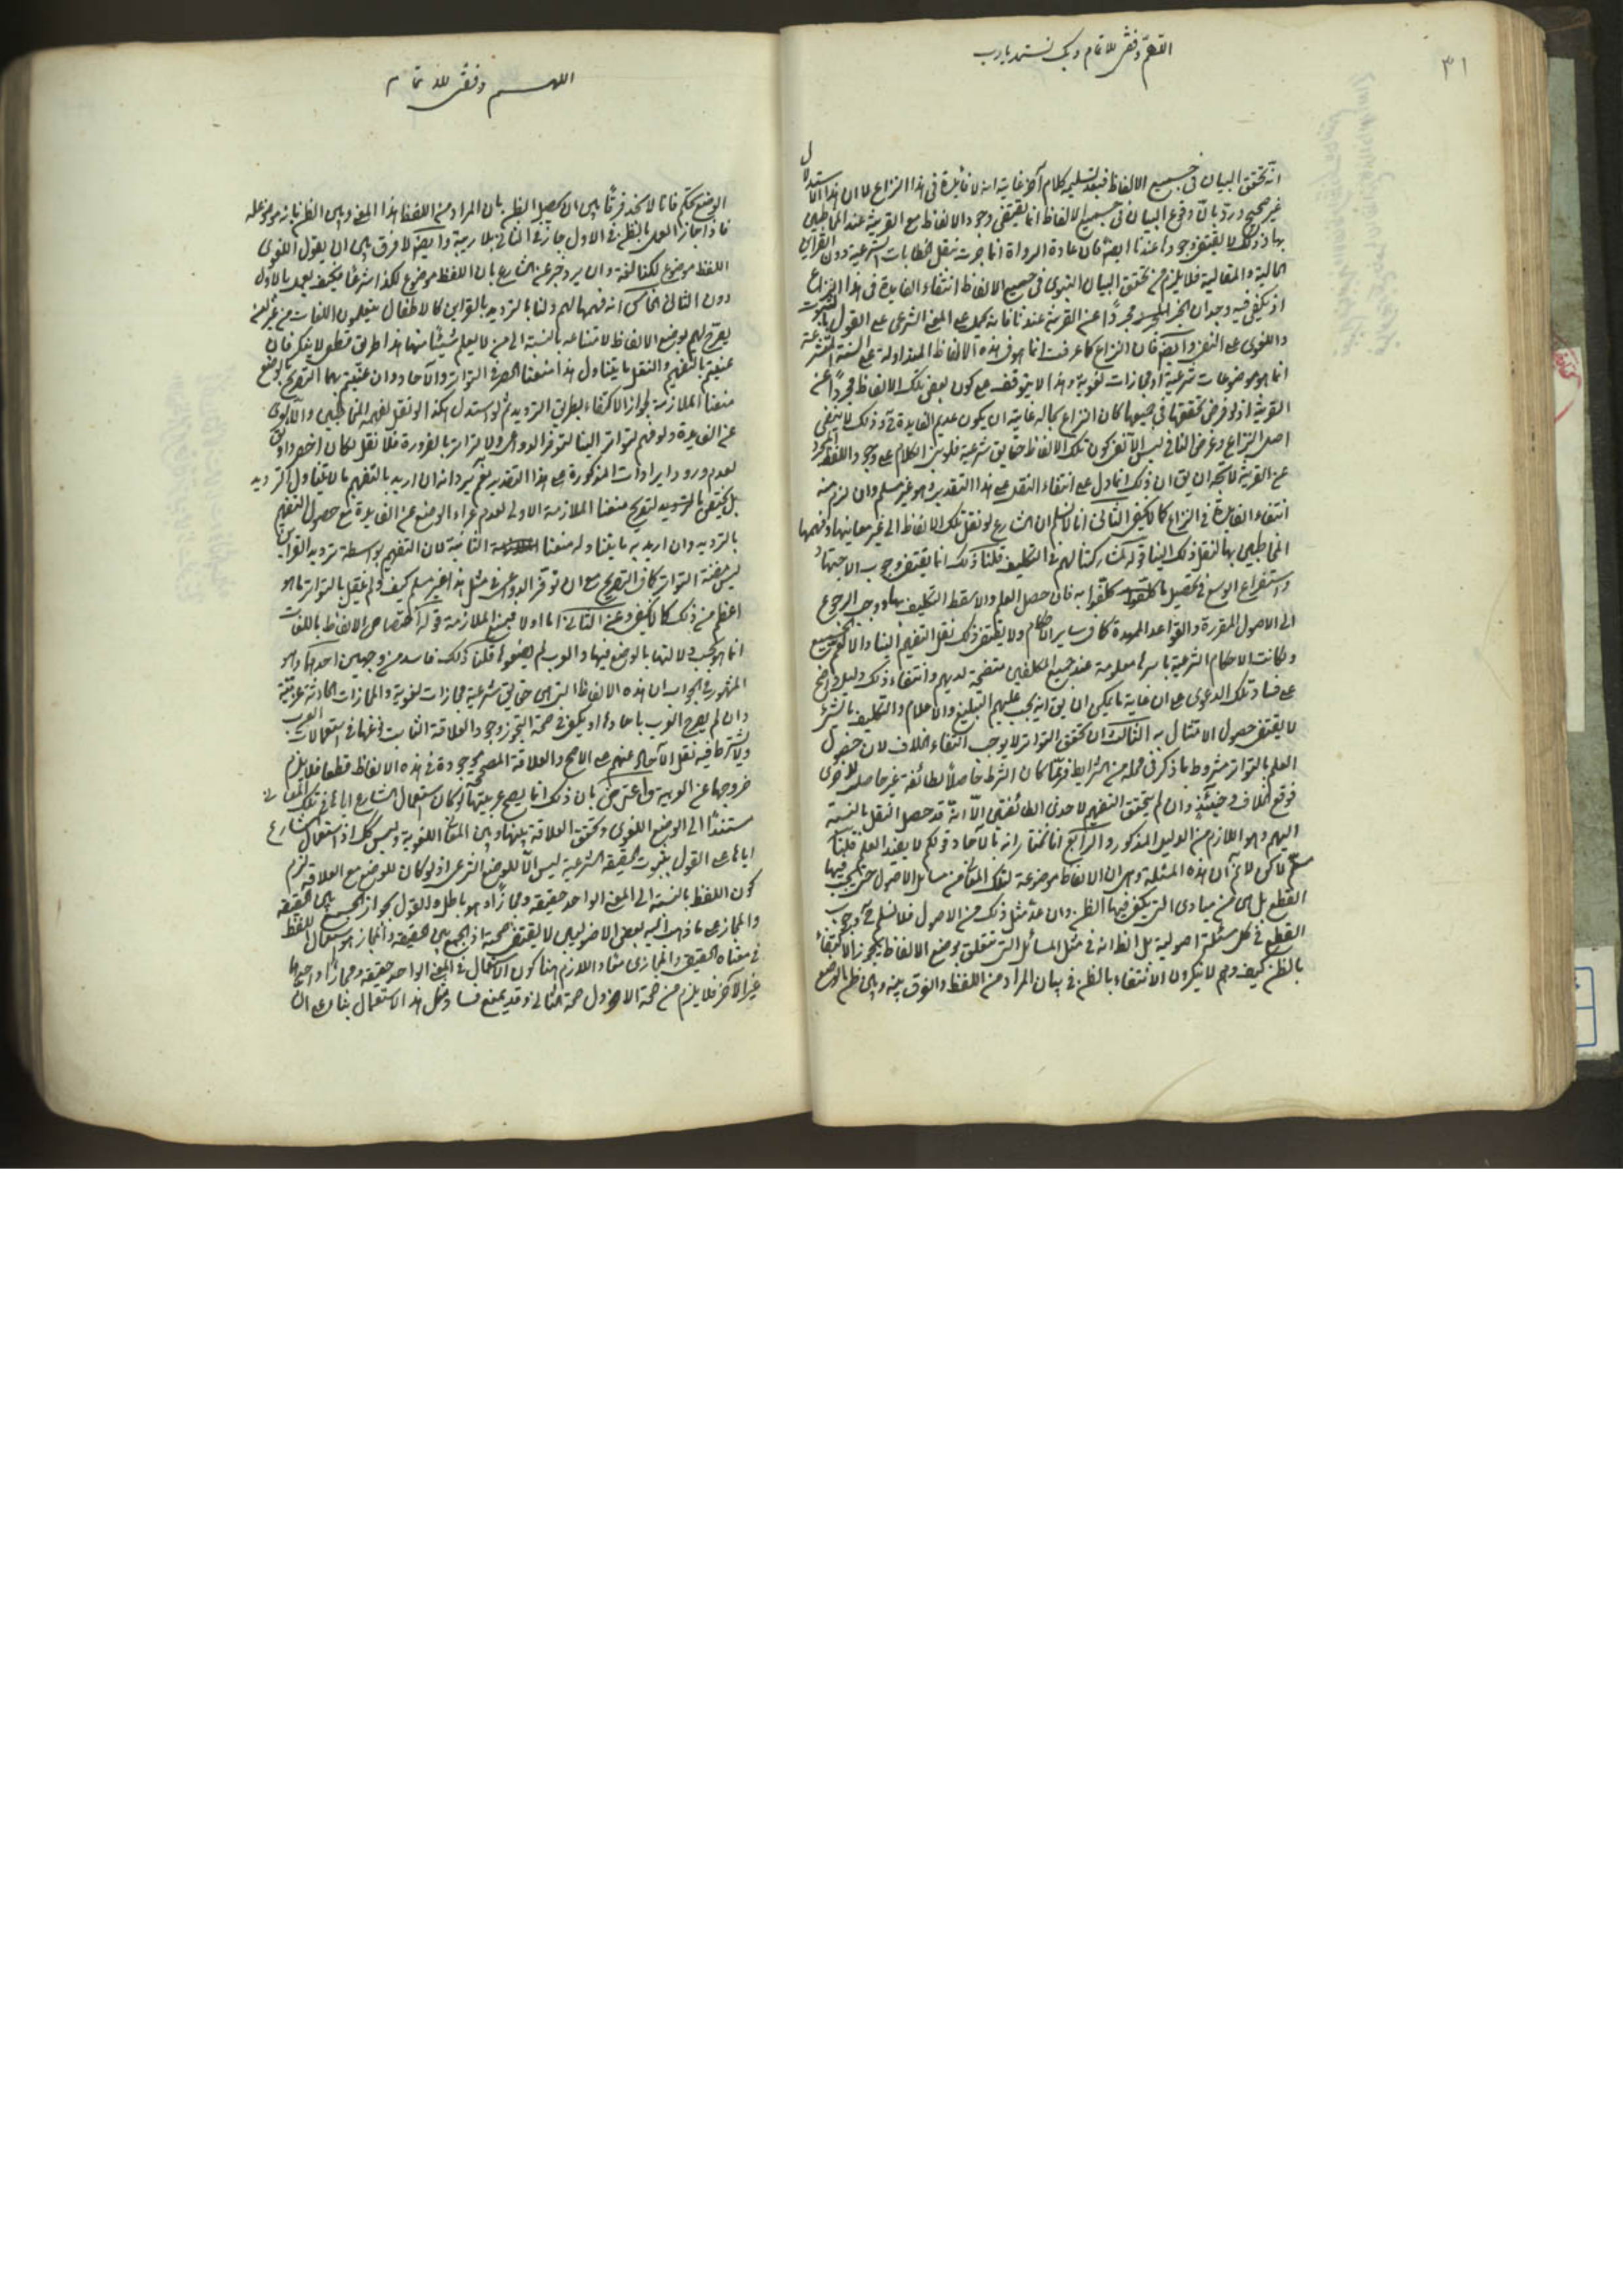 ٣١
اللهم وفقني للاتمام وبك نستمد يا رب
انه تحقق البيان في جميع الالفاظ فبعد تسليمه كلام آخر غايته انه لا فائدة في هذا النزاع لا ان هذا الاستدلال
غير صحيح ورد بان وقوع البيان في جميع الالفاظ انما يقتضى وجود الالفاظ مع القرينة عند المخاطبين
بها وذلك لا يقتضى وجودها عندنا ايضا فان عادة الرواة انما جرت بنقل الخطابات الشرعية دون القراين
الحالية والمقالية فلا يلزم من تحقق البيان النبوى في جميع الالفاظ انتفاء الفايدة في هذا النزاع
اذ يكفى فيه وجدان الخبر مجردا عن القرينة عندنا فانه يحمل على المعنى الشرعى على القول بالثبوت
واللغوى على النفى وايضا فان النزاع كما عرفت انما هو في هذه الالفاظ المتداولة على السنة المتشرعة
انما هو موضوعات شرعية او مجازات لغوية وهذا لا يتوقف على كون بعض تلك الالفاظ مجردا عن
القرينة اذ لو فرض تحققها في جميعها كان النزاع بحاله غايته ان يكون عديم الفايدة وذلك لا ينفى
اصل النزاع وغرض النافى ليس الا نفى كون تلك الالفاظ حقايق شرعية فلو بنى الكلام على وجود اللفظ المجرد
عن القرينة لاتجه ان يق ان ذلك انما دل على انتفاء النقل على هذا التقدير وهو غير مسلم وان لزم منه
انتفاء الفايدة في النزاع كما لا يخفى الثانى انا لا نسلم ان الشارع لو نقل تلك الالفاظ الى غير معانيها وفهمها
المخاطبين بها لنقل ذلك الينا قوله لمشاركتنا لهم في التكليف قلنا ذلك انما يقتضى وجوب الاجتهاد
واستفراغ الوسع في تحصيل ما كلفوا به فان حصل العلم والا سقط التكليف بها ووجب الرجوع
الى الاصول المقررة والقواعد الممهدة كما في ساير الاحكام ولا يقتضى ذلك نقل التفهيم الينا والا لعم الجميع
ولكانت الاحكام الشرعية باسرها معلومة عند جميع المكلفين متضحة لديهم وانتفاء ذلك دليل واضح
على فساد تلك الدعوى على ان غاية ما يمكن ان يق انه يجب عليهم التبليغ والاعلام والتكليف بالشئ
لا يقتضى حصول الامتثال به الثالث ان تحقق التواتر لا يوجب انتفاء الخلاف لان حصول
العلم بالتواتر مشروط بما ذكر في محله من الشرايط فربما كان الشرط حاصلا لطائفة غير حاصل للاخرى
فوقع الخلاف وحينئذ وان لم يتحقق التفهيم لاحدى الطائفتين الا انه قد حصل النقل بالنسبة
اليهم وهو اللازم من الدليل المذكور والرابع انا نختار انه بالآحاد قولكم لا يفيد العلم قلنا
مسلم لكن لا نم ان هذه المسئلة وهى ان الالفاظ موضوعة لتلك المعانى من مسايل الاصول حتى يجب فيها
القطع بل هى من مبادى التى يكفى فيها الظن وان عد مثل ذلك من الاصول فلا نسلم وجوب
القطع في كل مسئلة اصولية بل الظ انه في مثل المسائل التى تتعلق بوضع الالفاظ يجوز الاكتفاء
بالظن كيف وهم لا ينكرون الاكتفاء بالظن في بيان المراد من اللفظ والفرق بينه وبين ظن الوضع
اللهم وفقني للاتمام
الوضع تحكم فانا لا نجد فرقا بين ان يحصل الظن بان المراد من اللفظ هذا المعنى وبين الظن بانه موضوع له
فاذا جاز العمل بالظن في الاول جاز في الثانى بلا ريبة وايضا لا فرق بين ان يقول اللغوى
اللفظ موضوع لكذا لغة وان يرد خبر عن الشارع بان اللفظ موضوع لكذا شرعا فكيف يعمل بالاول
دون الثانى الخامس انه فهمها لهم ولنا بالترديد بالقراين كالاطفال يتعلمون اللغات من غير ان
يصرح لهم بوضع الالفاظ لامتناعه بالنسبة الى من لا يعلم شيئا منها هذا طريق قطعى لا ينكر فان
عنيتم بالتفهيم والنقل ما يتناول هذا منعنا الحصر في التواتر والآحاد وان عنيتم بهما التصريح بالوضع
منعنا الملازمة لجواز الاكتفاء بطريق الترديد ثم لو استدل هكذا لو نقل لفهمه المخاطبين والا لعرى
عن الفايدة ولو فهم لتواتر الينا لتوفر الدواعى ولا تواتر بالضرورة فلا نقل لكان اخصر واوفى
لعدم ورود ايرادات المذكورة على هذا التقدير نعم يرد انه ان اريد بالتفهيم ما لا يتناول الترديد
بل يختص بالترديد لتصريح منعنا الملازمة الاولى لعدم عراء الوضع عن الفايدة مع حصول التفهيم
بالترديد وان اريد به ما يتناوله منعنا الثانية لان التفهيم بواسطة ترديد القراين
ليس مظنة التواتر كما في التصريح مع ان توفر الدواعى في مثل هذا غير مسلم كيف ولم ينقل بالتواتر ما هو
اعظم من ذلك كما لا يخفى وعن الثانى اما اولا فبمنع الملازمة قوله اختصاص الالفاظ باللغات
انما هو بحسب دلالتها بالوضع فيها والعرب لم يضعوها قلنا ذلك فاسد من وجهين احدهما وهو
المشهور في الجواب ان هذه الالفاظ التى هى حقايق شرعية مجازات لغوية والمجازات الحادثة عربية
وان لم يصرح العرب باحادها اذ يكفى في صحة التجوز وجود العلاقة الثابت نوعها في استعمالات العرب
ولا يشترط فيه نقل الآحاد عنهم على الاصح والعلاقة المصححة موجودة في هذه الالفاظ قطعا فلا يلزم
خروجها عن العربية واعترض بان ذلك انما يصح عربيتها لو كان استعمال الشارع اياها في تلك المعانى
مستندا الى الوضع اللغوى وتحقق العلاقة بينها وبين المعانى اللغوية وليس كك اذ استعمال الشارع
اياها على القول بثبوت الحقيقة الشرعية ليس الا للوضع الشرعى اذ لو كان للوضع مع العلاقة لزم
كون اللفظ بالنسبة الى المعنى الواحد حقيقة ومجازا وهو باطل والقول بجواز الجمع بين الحقيقة
والمجاز على ما ذهب اليه بعض الاصوليين لا يقتضى صحته اذ الجمع بين الحقيقة والمجاز هو استعمال اللفظ
في معناه الحقيقى والمجازى معا واللازم هنا كون الاستعمال في المعنى الواحد حقيقة ومجازا واحدهما
غير الآخر فلا يلزم من صحة الاول صحة الثانى وقد يمنع فساد مثل هذا الاستعمال بناء على ان